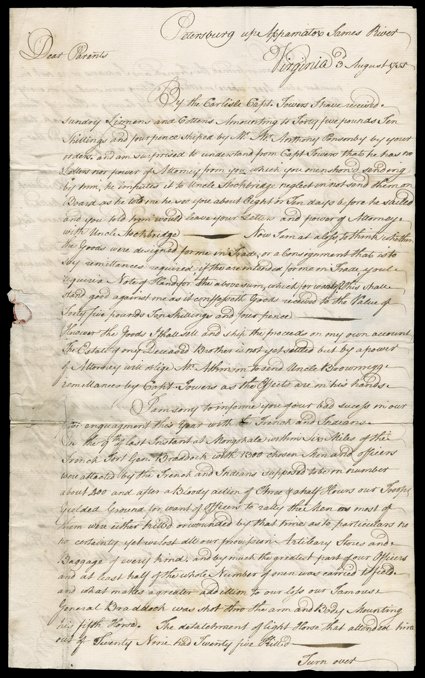 Petersburg up Appamatox James River
Virginia 3 August 1755
Dear Parents
By the Carlisle Capt. Towers I have receivd.
Sundry Linnens and Cottons Amounting to Forty five pounds Ten
Shillings and four pence shiped by Mr. Anthony Ponsonby by your
orders, and am surprised to understand from Capt. Towers that he has no
Letters nor power of Attorney from you which you mention'd sending
by him, he imputes it to Uncle Stockbridge neglect in not send them on
Board as he told me he see you about Eight or Ten days before he Sailed
and you told him would leave your Letters and power of Attorney
with Uncle Stockbridge Now I am at a loss to think whether
the Goods were designed for me in Trade, or a Consignment that is to
say remittances required, if they are intended for me in Trade, youl
require a Note of Hand for the above sum, which for want of this shall
stand good against me as it is for so much Goods received to the Value of
Forty five pounds Ten Shillings and four pence
However the Goods I shall sell and ship the proceeds on my own account
The Estate of my Deceased Brother is not yet settled but by a power
of Attorney will oblige Mr. Atkinson to send Uncle Browning
remittances by Capt. Towers as the Effects are in his hands.
I am sorry to informe you of our bad sucess in our
engagment this Year with the French and Indians
In the 9th. of last Instant at Mongahala within six Miles of the
French Fort Genl. Braddock with 1300 chosen Men and officers
was attacked by the French and Indians supposed to be in number
about 400 and after a Bloody action of Three & a half Hours our Troops
yielded Ground for want of Officers to rally the Men as most of
them were either killed or wounded by that time; as to particulars no
certainty, yet we lost all our provision Artillary Stores and
Baggage of every kind, and by much the greatest part of our Officers
and at least half of the whole Number of men was carried off
and what makes a greater addition to our loss our Famous
General Braddock was shot thro the arm and Body Mounting
his fifth Horse. The detatchment of light Horse that attended him
out of Twenty Nine had Twenty five Killed
Turn over